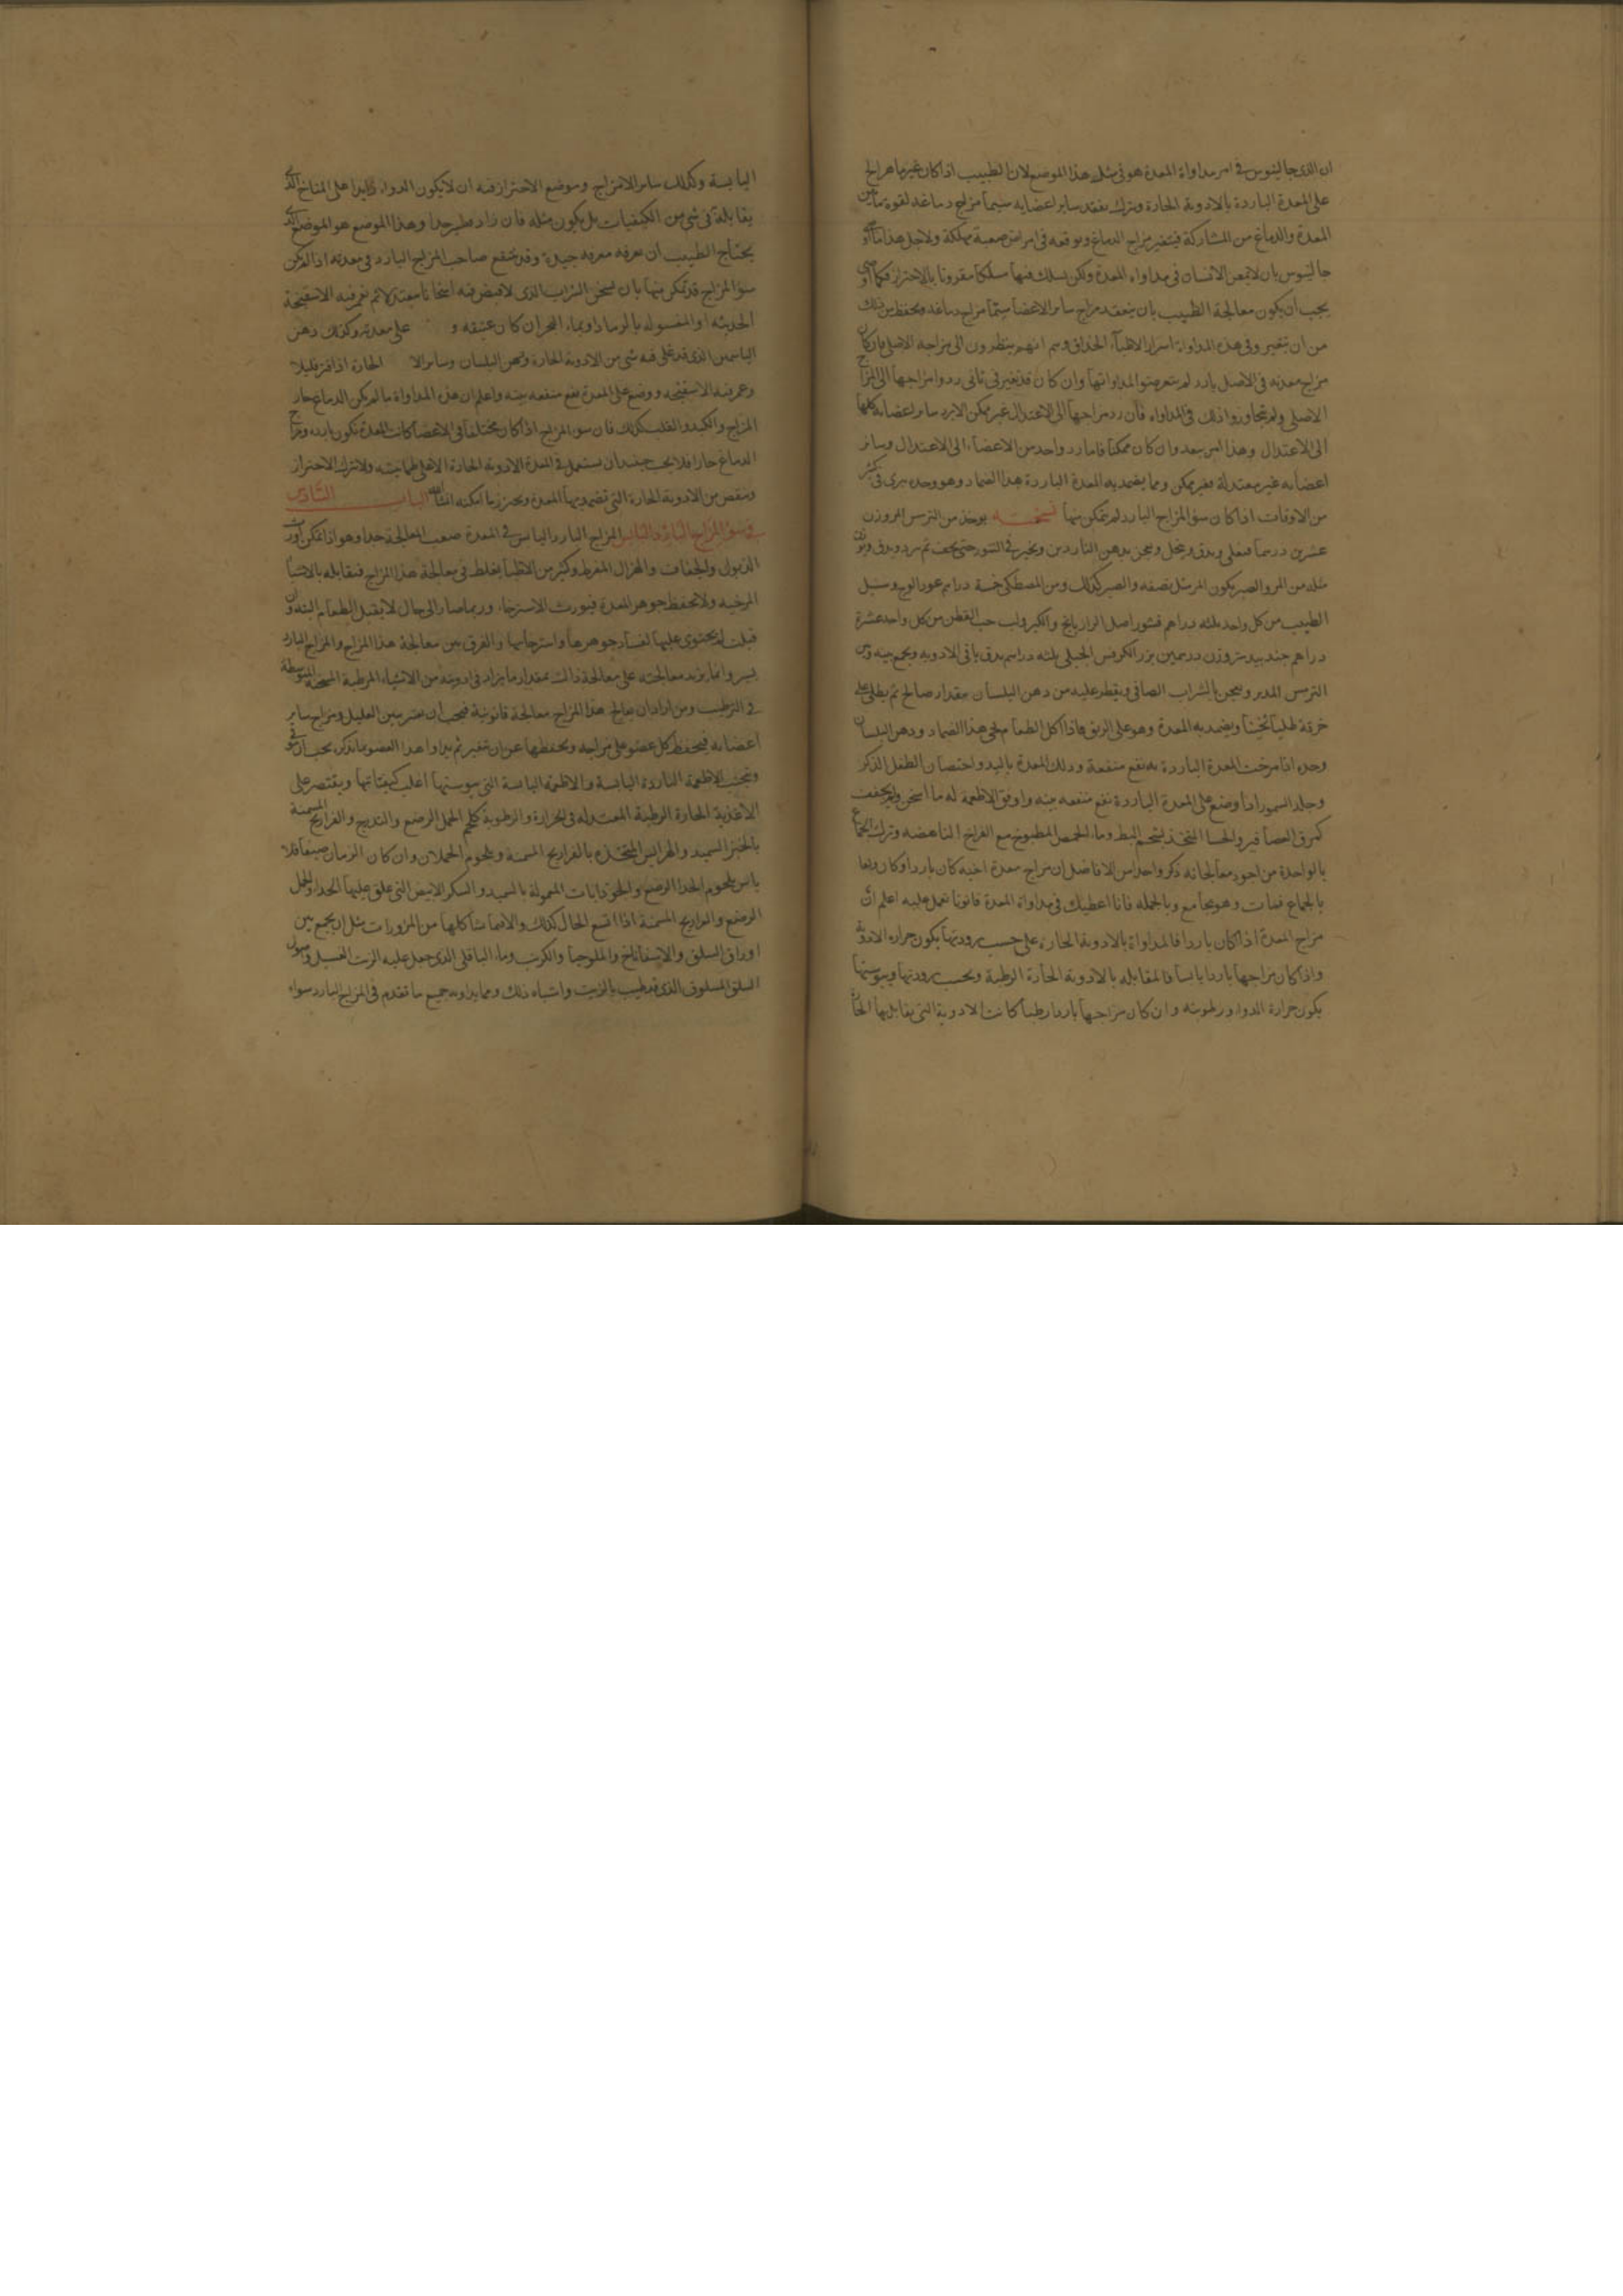 ان الذى جالينوس فى امر مداواة المعدة هو فى مثل هذا الموضع لان الطبيب اذا كان غير ماهر الح
على المعدة الباردة بالادوية الحارة وترك تفقد ساير اعضايه سيما مزاج دماغه لقوة ما بين
المعدة والدماغ من المشاركة فيتغير مزاج الدماغ ويوقعه فى امراض صعبة مهلكة ولاجل هذا ما
جالينوس بان لا يمعن الانسان فى مداواه المعدة ولكن يسلك فيها مسلكا مقرونا بالاحتراز فكما
يجب ان يكون معالجة الطبيب بان يتفقد مزاج ساير الاعضا سيما مزاج دماغه ويحفظ من ذلك
من ان يتغير وفى هذه المداواة اسرار الاطباء الحذاق وهم انهم ينظرون الى مزاجه الاصلى فان كان
مزاج معدته فى الاصل بارد لم يتعرضوا لمداواتها وان كان قد تغير فى ثانى ردوا مزاجها الى المزاج
الاصلى ولم يتجاوزوا ذلك فى المداواه فان رد مزاجها الى الاعتدال غير ممكن الا برد ساير اعضايه كلها
الى الاعتدال وهذا امر يبعد وان كان ممكنا فاما رد واحد من الاعضاء الى الاعتدال وساير
اعضايه غير معتدلة فغير ممكن ومما يضمد به المعدة الباردة هذا الضماد وهو وحده يبرى فى كثير
من الاوقات اذا كان سوء المزاج البارد لم يتمكن منها نسخته يوخذ من الترمس المر وزن
عشرين درهما فيغلى ويدق وينخل ويعجن بدهن الناردين ويخبز فى التنور حتى يجف ثم يبرد ويدق
مثله من المر والصبر يكون المر مثل نصفه والصبر كذلك ومن المصطكى خمسة دراهم عود الوج وسنبل
الطيب من كل واحد ثلثه دراهم قشور اصل الرازيانج والكبر ولب حب القطن من كل واحد عشرة
دراهم جند بيدستر وزن درهمين بزر الكرفس الجبلى ثلثه دراهم يدق باقى الادويه ويجمع بينه وبين
الترمس المدبر ويعجن بالشراب الصافى ويقطر عليه من دهن البلسان مقدار صالح ثم يطلى على
خرقة طليا ثخينا ويضمد به المعدة وهو على الريق فاذا اكل الطعام نحى هذا الضماد ودهن البلسان
وحده اذا مرخت المعدة الباردة به نفع منفعة ودلك المعدة باليد واحتضان الطفل الذكر
وجلد السمور اذا وضع على المعدة الباردة نفع منفعه بينه واوفق الاطعمة له ما اسخن ولم يجفف
كمرق العصافير والحسا المتخذ بشحم البط وماء الحمص المطبوخ مع الفراخ الناهضه وترك الجماع
بالواحدة من اجود معالجاته ذكر واحد من الافاضل ان مزاج معدة اخيه كان باردا وكان
بالجماع فمات وهو يجامع وبالجمله فانا اعطيك فى مداواة المعدة قانونا تعمل عليه اعلم ان
مزاج المعدة اذا كان باردا فالمداواة بالادوية الحاره على حسب برودتها يكون حراره الادوية
واذا كان مزاجها باردا يابسا فالمقابله بالادوية الحارة الرطبة وبحسب برودتها ويبوستها
يكون حرارة الدواء ورطوبته وان كان مزاجها باردا رطبا كانت الادوية التى يقابل بها الحارة
اليابسة وكذلك ساير الامزاج وموضع الاحتراز فيه ان لا يكون الدواء زايدا على المزاج الذى
يقابله فى شى من الكيفيات بل يكون مثله فان زاد جدا وهذا الموضع هو الموضع الذى
يحتاج الطبيب ان يعرفه معرفه جيدة وقد ينتفع صاحب المزاج البارد فى معدته اذا لم يكن
سوء المزاج قد تمكن منها بان يسخن الشراب الذى لا قبض فيه اسخانا معتدلا ثم تغمر فيه الاسفنجة
الحديثه او المغسوله بالرماد او بماء البحر ان كان عتيقه و على معدته وكذلك دهن
الياسمين الذى قد غلى فيه شى من الادوية الحارة ودهن البلسان وساير الا الحارة اذا فتر قليلا
وغمر فيه الاسفنجه ووضع على المعدة نفع منفعه بينه واعلم ان هذه المداواة ما لم يكن الدماغ حار
المزاج والكبد والقلب كذلك فان سوء المزاج اذا كان مختلفا فى الاعضا كانت المعدة تكون بارده ومزاج
الدماغ حارا فلا يجب حينئذ ان يستعمل فى المعدة الادوية الحارة الا على طمانينه ولا يترك الاحتراز
وينقص من الادوية الحارة التى تضمد بها المعدة ويحترز ما امكنه انشا الله الباب السادس
فى سوء المزاج البارد اليابس المزاج البارد اليابس فى المعدة صعب المعالجة جدا وهو اذا تمكن اورث
الذبول والجفاف والهزال المفرط وكثير من الاطبا يغلط فى معالجة هذا المزاج فيقابله بالاشيا
المرخيه ولا يحفظ جوهر المعدة فيورث الاسترخا وربما صار الى حال لا يقبل الطعام البته وان
قبلت لم يحتوى عليها لفساد جوهرها واسترخايها والفرق بين معالجة هذا المزاج والمزاج البارد
يسير وانما يزيد معالجته على معالجة ذاك بمقدار ما يزاد فى ادويته من الاشياء المرطبة المسخنة المتوسطة
فى الترطيب ومن اراد ان يعالج هذا المزاج معالجة قانونية فيجب ان يعتبر بين العليل ومزاج ساير
اعضايه فيحفظ كل عضو على مزاجه ويحفظها عن ان تتغير ثم يداوا هذا العضو بما نذكره يجب ان
وتجنب الاطعمة الباردة اليابسة والاطعمة اليابسة التى يبوستها اغلب كيفياتها ويقتصر على
الاغذية الحارة الرطبة المعتدله فى الحرارة والرطوبة كلحم الحمل الرضع والتدرج والفراريج المسمنة
بالخبز السميد والهرايس المتخذه بالفراريج المسمنة وبلحوم الحملان وان كان الزمان صيفا فلا
باس بلحوم الجدا الرضع والجوذابات المعمولة بالسميد والسكر الابيض التى علق عليها الجدا والحمل
الرضع والفراريج المسمنة اذا اتسع الحال كذلك والا فما شاكلها من المزورات مثل ان يجمع بين
اوراق السلق والاسفاناخ والملوخيا والكرنب وماء الباقلى الذى جعل عليه الزيت الغسيل واصول
السلق المسلوق الذى قد طيب بالزيت واشباه ذلك ومما يداويه جميع ما تقدم فى المزاج البارد سواء